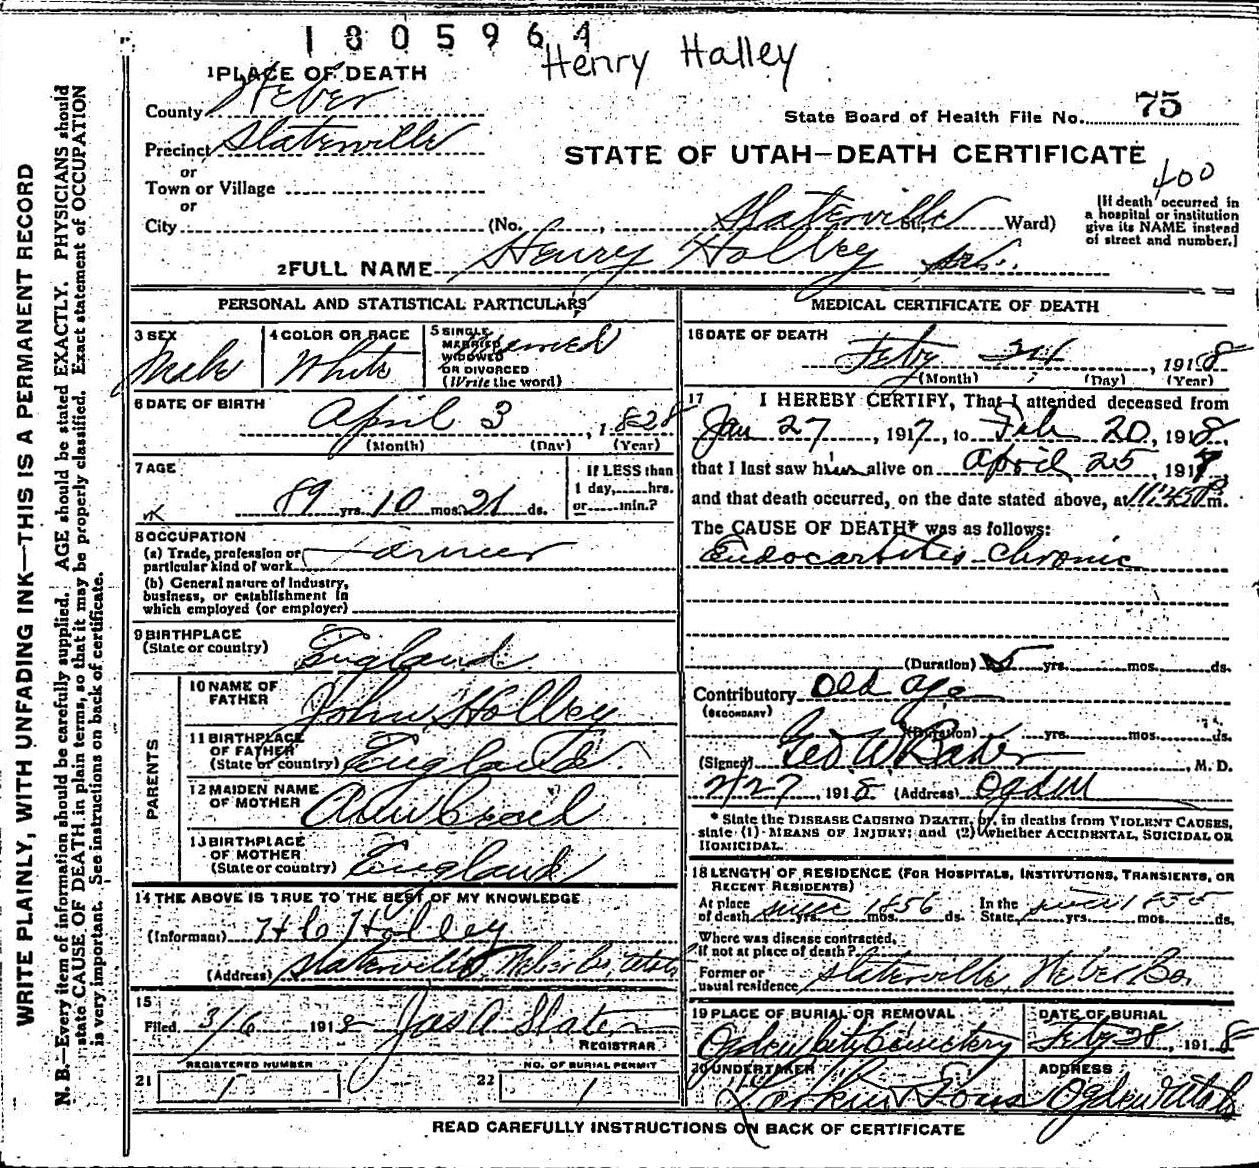 1805964
Henry Halley
1 PLACE OF DEATH
County Weber
State Board of Health File No. 75
Precinct Slaterville
STATE OF UTAH—DEATH CERTIFICATE
or
400
Town or Village
or
City (No. , Slaterville St., Ward)
[If death occurred in
a hospital or institution
give its NAME instead
of street and number.]
2 FULL NAME Henry Holley
PERSONAL AND STATISTICAL PARTICULARS
3 SEX
Male
4 COLOR OR RACE
White
5 SINGLE
MARRIED
WIDOWED
OR DIVORCED
(Write the word)
6 DATE OF BIRTH
April 3, 1828
(Month) (Day) (Year)
7 AGE
89 yrs. 10 mos. 21 ds.
If LESS than
1 day, hrs.
or min.?
8 OCCUPATION
(a) Trade, profession or
particular kind of work Farmer
(b) General nature of Industry,
business, or establishment in
which employed (or employer)
9 BIRTHPLACE
(State or country) England
PARENTS
10 NAME OF
FATHER John Holley
11 BIRTHPLACE
OF FATHER
(State or country) England
12 MAIDEN NAME
OF MOTHER Ann
13 BIRTHPLACE
OF MOTHER
(State or country) England
14 THE ABOVE IS TRUE TO THE BEST OF MY KNOWLEDGE
(Informant) Holley
(Address) Slaterville, Weber Co. Utah
15
Filed 3/6 191 Jas A Slater
REGISTRAR
REGISTERED NUMBER
21 1
NO. OF BURIAL PERMIT
22 1
MEDICAL CERTIFICATE OF DEATH
16 DATE OF DEATH
Feby 24, 1918
(Month) (Day) (Year)
17 I HEREBY CERTIFY, That I attended deceased from
Jan 27, 1917, to Feb 20, 1918,
that I last saw him alive on April 25, 191
and that death occurred, on the date stated above, at m.
The CAUSE OF DEATH* was as follows:
Endocarbites Chronic
(Duration) 5 yrs. mos. ds.
Contributory Old age
(SECONDARY)
(Duration) yrs. mos. ds.
(Signed) Geo W Baker, M. D.
2/27, 1918 (Address) Ogden
* State the DISEASE CAUSING DEATH, or, in deaths from VIOLENT CAUSES,
state (1) MEANS OF INJURY; and (2) whether ACCIDENTAL, SUICIDAL OR
HOMICIDAL.
18 LENGTH OF RESIDENCE (FOR HOSPITALS, INSTITUTIONS, TRANSIENTS, OR
RECENT RESIDENTS)
At place
of death since 1856 yrs. mos. ds.
In the
State since 1855 yrs. mos. ds.
Where was disease contracted,
if not at place of death?
Former or
usual residence Slaterville, Weber Co.
19 PLACE OF BURIAL OR REMOVAL
Ogden City Cemetery
DATE OF BURIAL
Feby 28, 1918
20 UNDERTAKER
Larkin & Sons
ADDRESS
Ogden Utah
READ CAREFULLY INSTRUCTIONS ON BACK OF CERTIFICATE
WRITE PLAINLY, WITH UNFADING INK—THIS IS A PERMANENT RECORD
N. B.—Every item of information should be carefully supplied. AGE should be stated EXACTLY. PHYSICIANS should
state CAUSE OF DEATH in plain terms, so that it may be properly classified. Exact statement of OCCUPATION
is very important. See instructions on back of certificate.